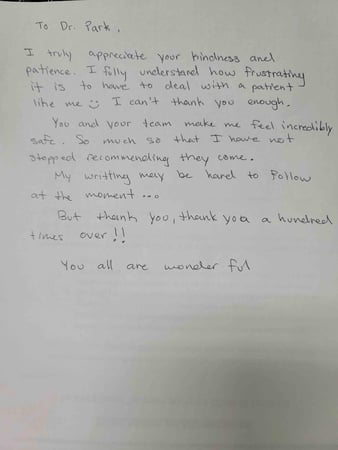 To Dr. Park,
I truly appreciate your kindness and
patience. I fully understand how frustrating
it is to have to deal with a patient
like me :) I can't thank you enough.
You and your team make me feel incredibly
safe. So much so that I have not
stopped recommending they come.
My writting may be hard to follow
at the moment...
But thank you, thank you a hundred
times over!!
You all are wonder ful